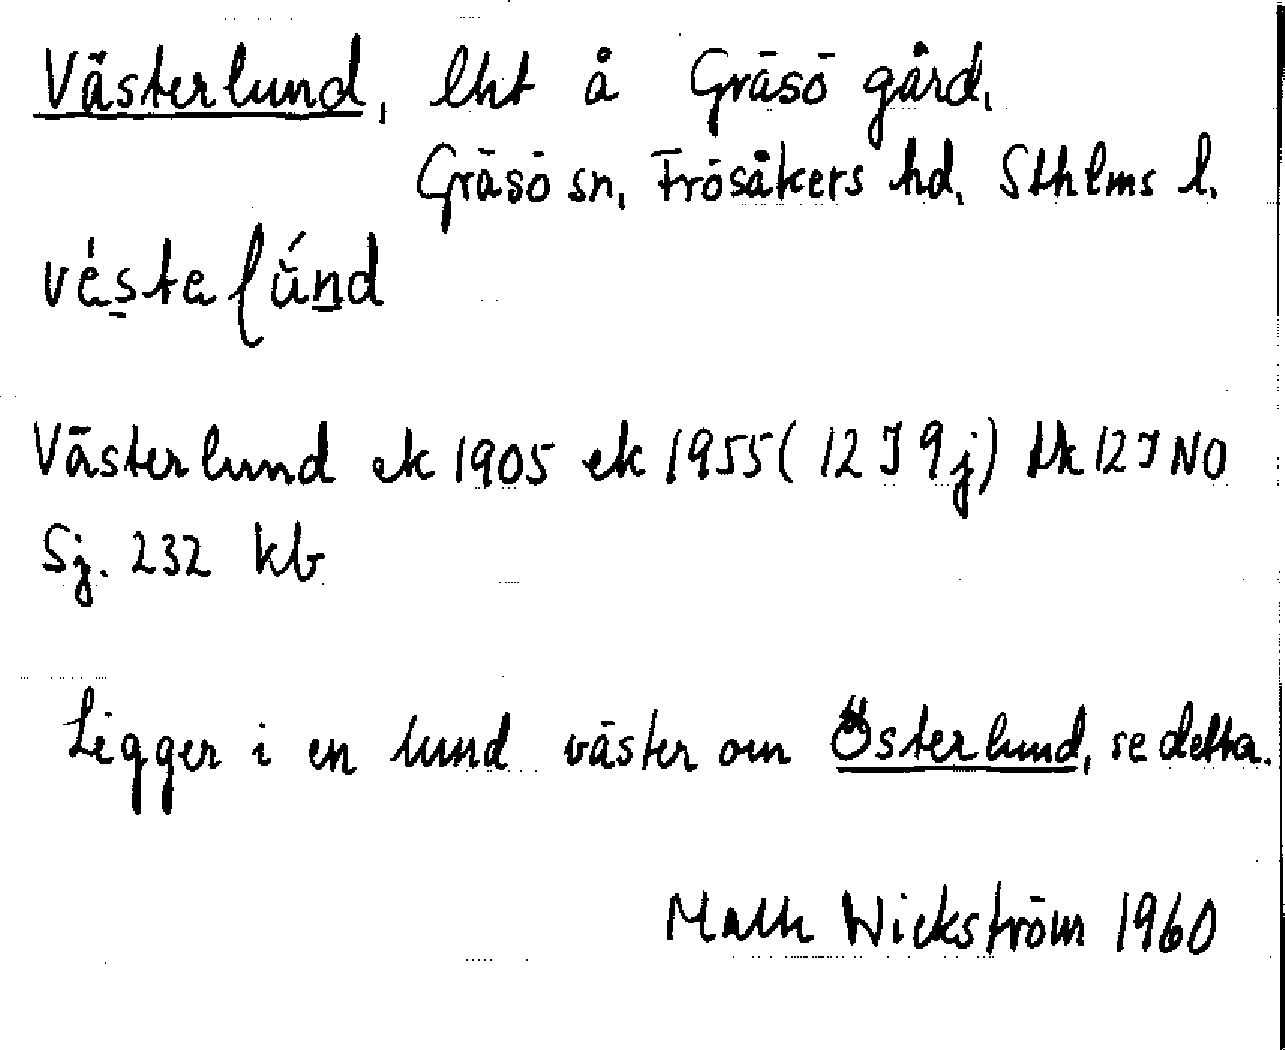 Västerlund, lht å Gräsö gård,
Gräsö sn, Frösåkers hd, Sthlms l.
Västerlund ek 1905 ek 1955 (12 I 9 j) tk 12 I NO
Sj. 232 kb
Ligger i en lund väster om Österlund, se detta.
Wickström 1960